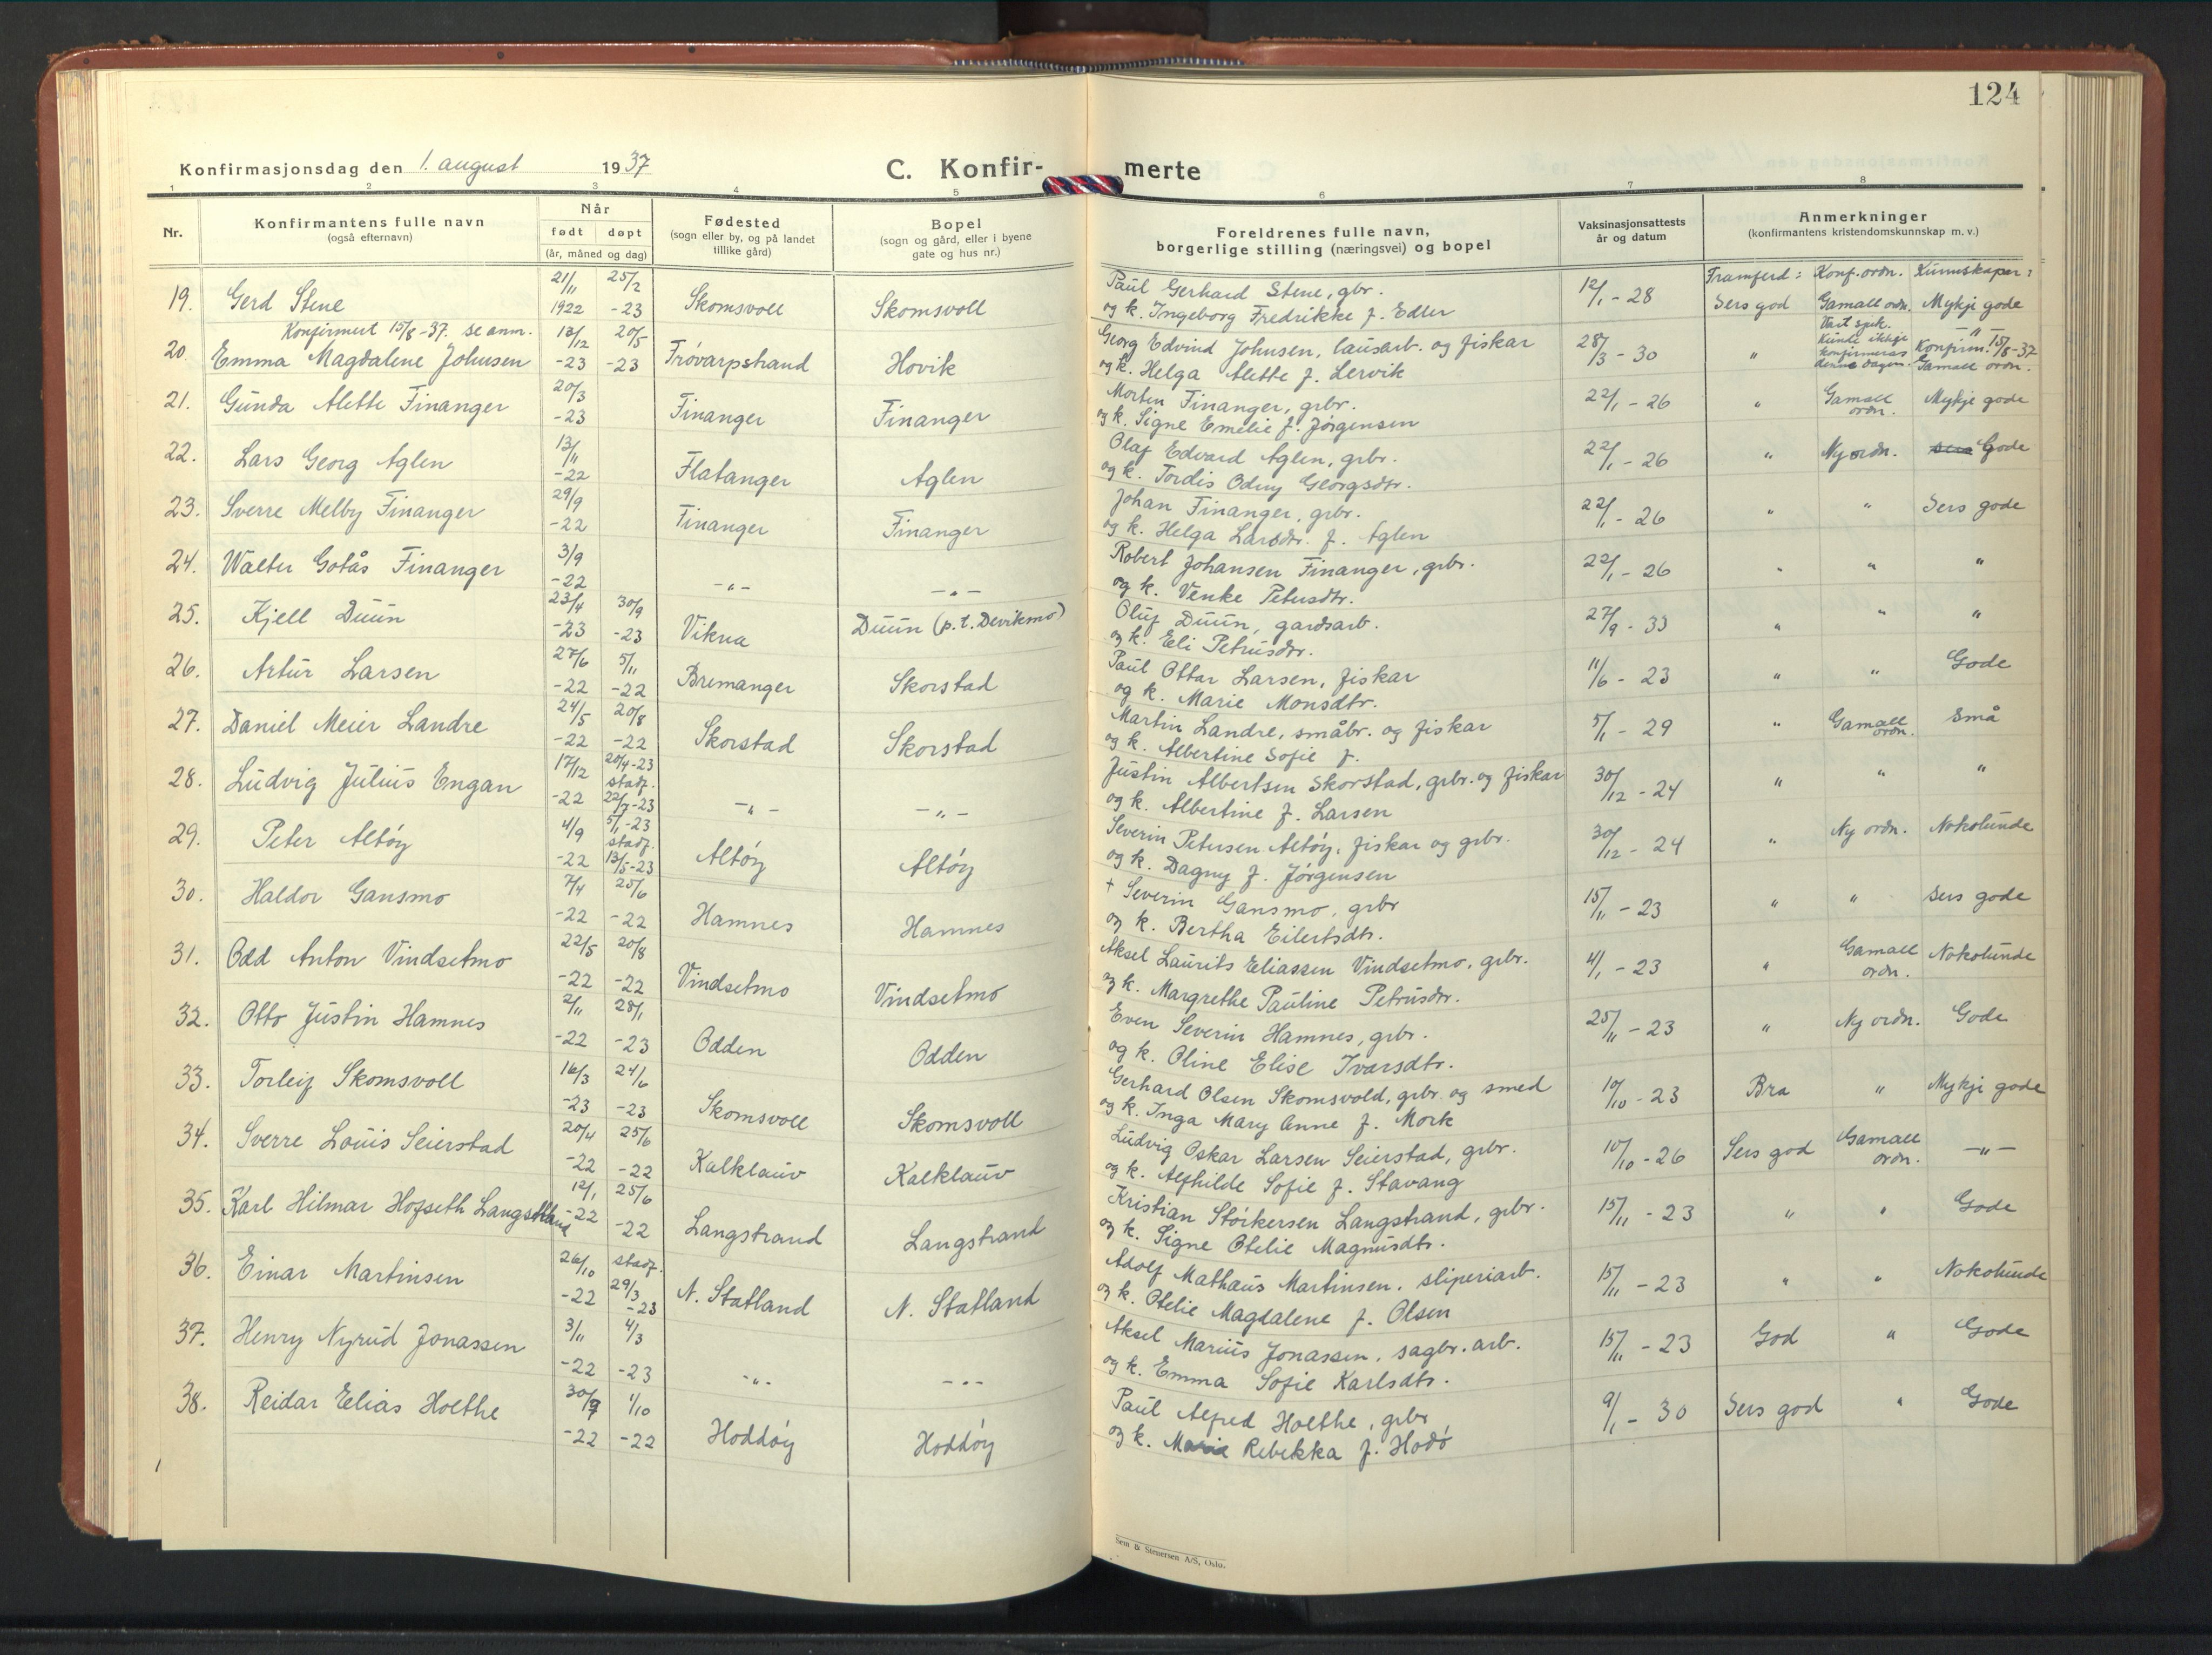 124
Konfirmasjonsdag den 1. august 1937
C. Konfirmerte
1 2 3 4 5 6 7 8
Nr.
Konfirmantens fulle navn
(også efternavn)
Når
født døpt
(år, måned og dag)
Fødested
(sogn eller by, og på landet
tillike gård)
Bopel
(sogn og gård, eller i byene
gate og hus nr.)
Foreldrenes fulle navn,
borgerlige stilling (næringsvei) og bopel
Vaksinasjonsattests
år og datum
Anmerkninger
(konfirmantens kristendomskunnskap m. v.)
Framferd: Konf.ordn. Kunnskaper:
19. Gerd Stene 21/11 1922 25/2 -23 Skomsvoll Skomsvoll
Paul Gerhard Stene, gbr.
og k. Ingeborg Fredrikke f. Edler
12/1 - 28 Sers god Gamall ordn. Mykje gode
Konfirmert 15/8-37. se anm.
20. Emma Magdalene Johnsen 13/12 -23 20/5 -23 Trøvarpstrand Hovik
Georg Edvind Johnsen, lausarb. og fiskar
og k. Helga Alette f. Lervik
28/3 - 30 " Vart sjuk. Kunde ikkje konfirmeras denne dagen. -"- Konfirm. 15/8-37 Gamall ordn.
21. Gunda Alette Finanger 20/3 -23 Finanger Finanger
Morten Finanger, grbr.
og k. Signe Emelie f. Jørgensen
22/1 - 26 " Gamall ordn. Mykje gode
22. Lars Georg Aglen 13/11 -22 Flatanger Aglen
Olaf Edvard Aglen, grbr.
og k. Tordis Odny Georgsdtr.
22/1 - 26 " Ny ordn. sers Gode
23. Sverre Melby Finanger 29/9 -22 Finanger Finanger
Johan Finanger, grbr.
og k. Helga Larsdtr. f. Aglen
22/1 - 26 " " Sers gode
24. Walter Gotås Finanger 3/9 -22 -"- -"-
Robert Johansen Finanger, grbr.
og k. Venke Petersdtr.
22/1 - 26 " " "
25. Kjell Duun 23/4 -23 30/9 -23 Vikna Duun (p. t. Devikmo)
Oluf Duun, gardsarb.
og k. Eli Petrusdtr.
27/9 - 33 " " "
26. Artur Larsen 27/6 -22 5/11 -22 Bremanger Skorstad
Paul Ottar Larsen, fiskar
og k. Marie Monsdtr.
11/6 - 23 " " Gode
27. Daniel Meier Landre 24/5 -22 20/8 -22 Skorstad Skorstad
Martin Landre, småbr. og fiskar
og k. Albertine Sofie f.
5/1 - 29 " Gamall ordn. Små
28. Ludvig Julius Engan 17/12 -22 20/4-23 stadf. 22/7-23 -"- -"-
Justin Albertsen Skorstad, grbr. og fiskar
og k. Albertine f. Larsen
30/12 - 24 " " "
29. Peter Altøy 4/9 -22 5/1-23 stadf. 13/5-23 Altøy Altøy
Severin Petersen Altøy, fiskar og grbr.
og k. Dagny f. Jørgensen
30/12 - 24 " Ny ordn. Nokolunde
30. Haldor Gansmo 7/4 -22 25/6 -22 Hamnes Hamnes
+ Severin Gansmo, grbr
og k. Bertha Eilertsdtr.
15/11 - 23 " " Sers gode
31. Odd Anton Vindsetmo 22/5 -22 20/8 -22 Vindsetmo Vindsetmo
Aksel Laurits Eliassen Vindsetmo, grbr.
og k. Margrethe Pauline Petrusdtr.
4/1 - 23 " Gamall ordn. Nokolunde
32. Otto Justin Hamnes 2/11 -22 28/1 -23 Odden Odden
Even Severin Hamnes, grbr.
og k. Oline Elise Ivarsdtr.
25/11 - 23 " Ny ordn. Gode
33. Torleif Skomsvoll 16/3 -23 24/6 -23 Skomsvoll Skomsvoll
Gerhard Olsen Skomsvold, grbr. og smed
og k. Inga Mary Anne f. Mork
10/10 - 23 Bra " Mykje gode
34. Sverre Louis Seierstad 20/4 -22 25/6 -22 Kalklauv Kalklauv
Ludvig Oskar Larsen Seierstad, grbr.
og k. Alfhilde Sofie f. Stavang
10/10 - 26 Sers god Gamall ordn. -"-
35. Karl Hilmar Hofseth Langstrand 12/1 -22 25/6 -22 Langstrand Langstrand
Kristian Størkersen Langstrand, grbr.
og k. Signe Otelie Magnusdtr.
15/11 - 23 " " Gode
36. Einar Martinsen 26/10 -22 stadf. 29/3 -23 N. Statland N. Statland
Adolf Mathæus Martinsen, sliperiarb.
og k. Otelie Magdalene f. Olsen
15/11 - 23 " " Nokolunde
37. Henry Nyrud Jonassen 3/11 -22 4/3 -23 -"- -"-
Aksel Marius Jonassen, sagbr. arb.
og k. Emma Sofie Karlsdtr.
15/11 - 23 God " Gode
38. Reidar Elias Holthe 30/7 -22 1/10 -22 Hoddøy Hoddøy
Paul Alfred Holthe, grbr
og k. Maria Rebekka f. Hodø
9/1 - 30 Sers god " Gode
Sem & Stenersen A/S, Oslo.